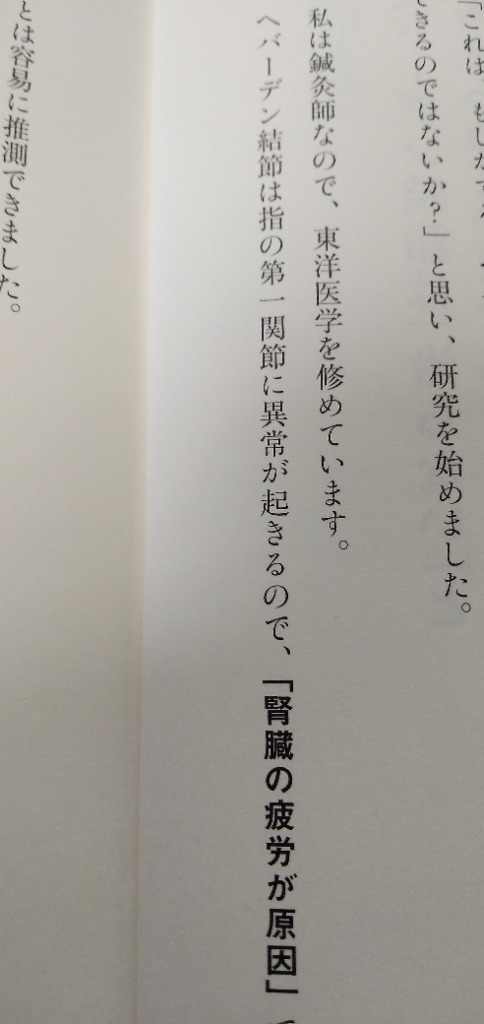 「これは
できるのではないか?」と思い、研究を始めました。
私は鍼灸師なので、東洋医学を修めています。
ヘバーデン結節は指の第一関節に異常が起きるので、「腎臓の疲労が原因」で
とは容易に推測できました。